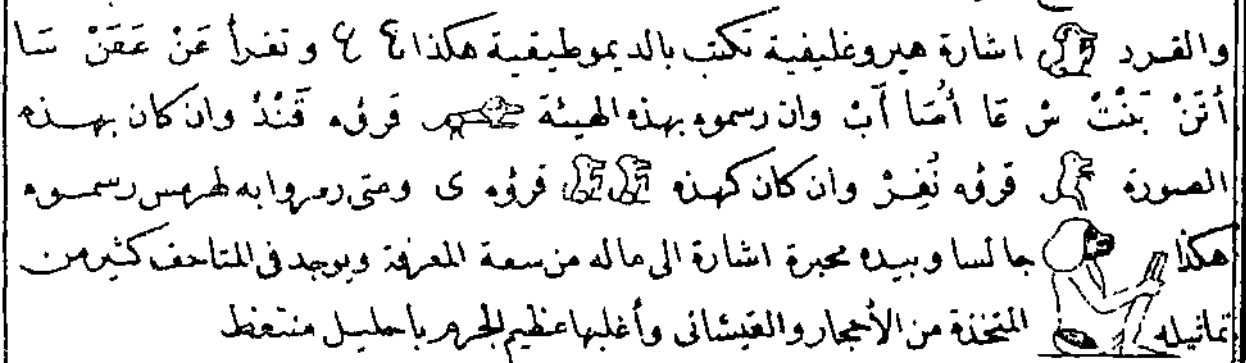 والقرد اشارة هيروغليفية تكتب بالديموطيقية هكذا وتقرأ عَنْ عَقَنْ سَا
أَنَنْ بَنْتْ شْ عَا أُمَا آبْ وان رسموه بهذه الهيئة قرؤه قَنْدْ وان كان بهذه
الصورة قرؤه نُفِرْ وان كان كهذه قرؤه ى ومتى رمزوا به لهرمس رسموه
هكذا جالسا وبيده محبرة اشارة الى ماله من سعة المعرفة ويوجد فى المتاحف كثير من
تماثيله المتخذة من الأحجار والقيشانى وأغلبها عظيم الجرم باحليل منتعظ